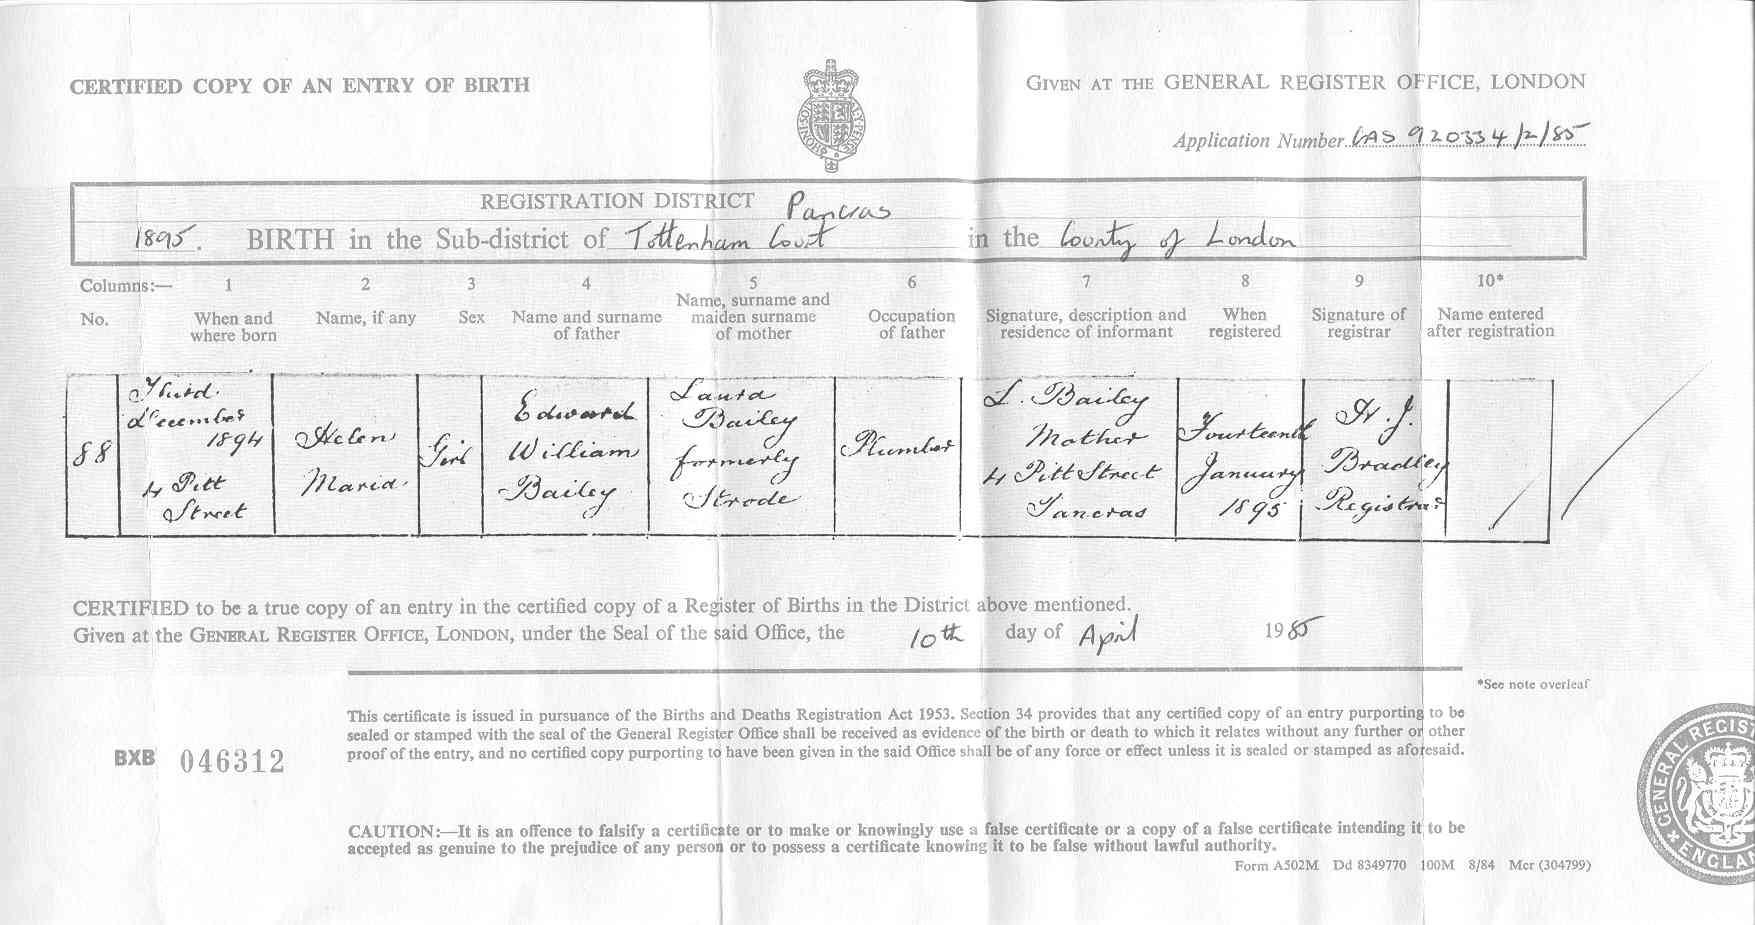 CERTIFIED COPY OF AN ENTRY OF BIRTH
GIVEN AT THE GENERAL REGISTER OFFICE, LONDON
Application Number PAS 920334/2/85
REGISTRATION DISTRICT Pancras
1895. BIRTH in the Sub-district of Tottenham Court in the County of London
Columns:— 1 2 3 4 5 6 7 8 9 10*
No.
When and
where born
Name, if any
Sex
Name and surname
of father
Name, surname and
maiden surname
of mother
Occupation
of father
Signature, description and
residence of informant
When
registered
Signature of
registrar
Name entered
after registration
88
Third
December
1894
4 Pitt
Street
Helen
Maria
Girl
Edward
William
Bailey
Laura
Bailey
formerly
Strode
Plumber
L. Bailey
Mother
4 Pitt Street
Pancras
Fourteenth
January
1895
J.
Bradley
Registrar
CERTIFIED to be a true copy of an entry in the certified copy of a Register of Births in the District above mentioned.
Given at the GENERAL REGISTER OFFICE, LONDON, under the Seal of the said Office, the 10th day of April 1985
*See note overleaf
This certificate is issued in pursuance of the Births and Deaths Registration Act 1953. Section 34 provides that any certified copy of an entry purporting to be
sealed or stamped with the seal of the General Register Office shall be received as evidence of the birth or death to which it relates without any further or other
proof of the entry, and no certified copy purporting to have been given in the said Office shall be of any force or effect unless it is sealed or stamped as aforesaid.
BXB 046312
GENERAL REGIST
ENGLA
CAUTION:—It is an offence to falsify a certificate or to make or knowingly use a false certificate or a copy of a false certificate intending it to be
accepted as genuine to the prejudice of any person or to possess a certificate knowing it to be false without lawful authority.
Form A502M Dd 8349770 100M 8/84 Mcr (304799)